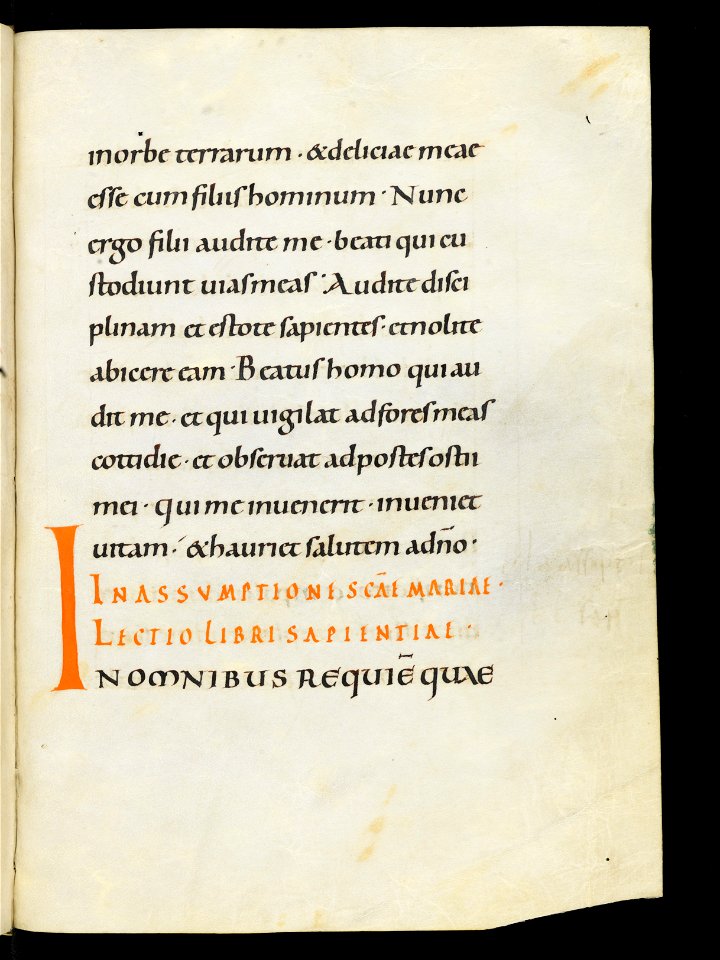 inorbe terrarum · &deliciae meae
esse cum filiis hominum · Nunc
ergo filii audite me · beati qui cu
stodiunt uias meas · Audite disci
plinam et estote sapientes · et nolite
abicere eam · Beatus homo qui au
dit me · et qui uigilat ad fores meas
cottidie · et obseruat ad postes ostii
mei · qui me inuenerit · inueniet
uitam · &hauriet salutem adnō ·
IN ASSVMPTIONE SCĀE MARIAE ·
LECTIO LIBRI SAPIENTIAE ·
IN OMNIBUS REQUIĒ QUAE